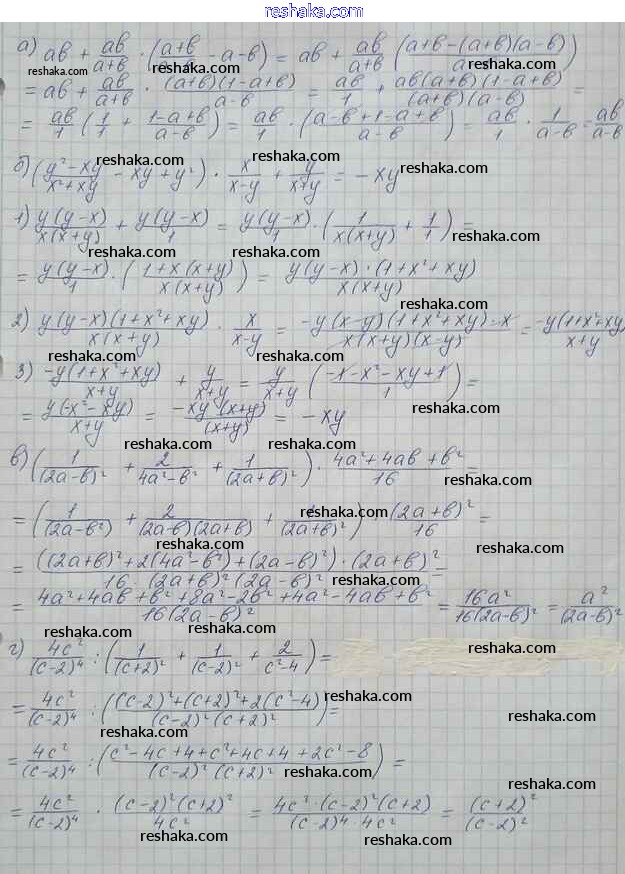 reshaka.com
а) ab + ab/(a+b) · ((a+b)/(a-b) - a - b) = ab + ab/(a+b) ((a+b-(a+b)(a-b))/a
reshaka.com reshaka.com
= ab + ab/(a+b) · (a+b)(1-a+b)/(a-b) = ab/1 + ab(a+b)(1-a+b)/((a+b)(a-b)) =
= ab/1 (1/1 + (1-a+b)/(a-b)) = ab/1 · ((a-b+1-a+b)/(a-b)) = ab/1 · 1/(a-b) = ab/(a-b)
reshaka.com reshaka.com reshaka.com
б) ((y²-xy)/(x²+xy) - xy + y²) · x/(x-y) + y/(x+y) = -xy
reshaka.com
1) y(y-x)/(x(x+y)) + y(y-x)/1 = y(y-x)/1 · (1/(x(x+y)) + 1/1) =
reshaka.com reshaka.com reshaka.com
= y(y-x)/1 · ((1+x(x+y))/(x(x+y))) = y(y-x)·(1+x²+xy)/(x(x+y))
reshaka.com
2) y(y-x)(1+x²+xy)/(x(x+y)) · x/(x-y) = -y(x-y)(1+x²+xy)·x/(x(x+y)(x-y)) = -y(1+x²+xy)/(x+y)
reshaka.com reshaka.com
3) -y(1+x²+xy)/(x+y) + y/(x+y) = y/(x+y) ((-1-x²-xy+1)/1) =
reshaka.com
= y(-x²-xy)/(x+y) = -xy(x+y)/(x+y) = -xy
reshaka.com reshaka.com
в) (1/(2a-b)² + 2/(4a²-b²) + 1/(2a+b)²) · (4a²+4ab+b²)/16 =
reshaka.com
= (1/(2a-b²) + 2/((2a-b)(2a+b)) + 1/(2a+b)²) · (2a+b)²/16 =
reshaka.com reshaka.com
= ((2a+b)²+2(4a²-b²)+(2a-b)²)·(2a+b)²/(16·(2a+b)²(2a-b)²) =
reshaka.com reshaka.com
= (4a²+4ab+b²+8a²-2b²+4a²-4ab+b²)/(16(2a-b)²) = 16a²/(16(2a-b)²) = a²/(2a-b)²
reshaka.com reshaka.com
г) 4c²/(c-2)⁴ : (1/(c+2)² + 1/(c-2)² + 2/(c²-4)) =
reshaka.com
= 4c²/(c-2)⁴ : (((c-2)²+(c+2)²+2(c²-4))/((c-2)²(c+2)²)) =
reshaka.com reshaka.com
= 4c²/(c-2)⁴ : ((c²-4c+4+c²+4c+4+2c²-8)/((c-2)²(c+2)²)) =
reshaka.com reshaka.com reshaka.com
= 4c²/(c-2)⁴ · (c-2)²(c+2)²/4c² = 4c²·(c-2)²(c+2)/((c-2)⁴·4c²) = (c+2)²/(c-2)²
reshaka.com reshaka.com